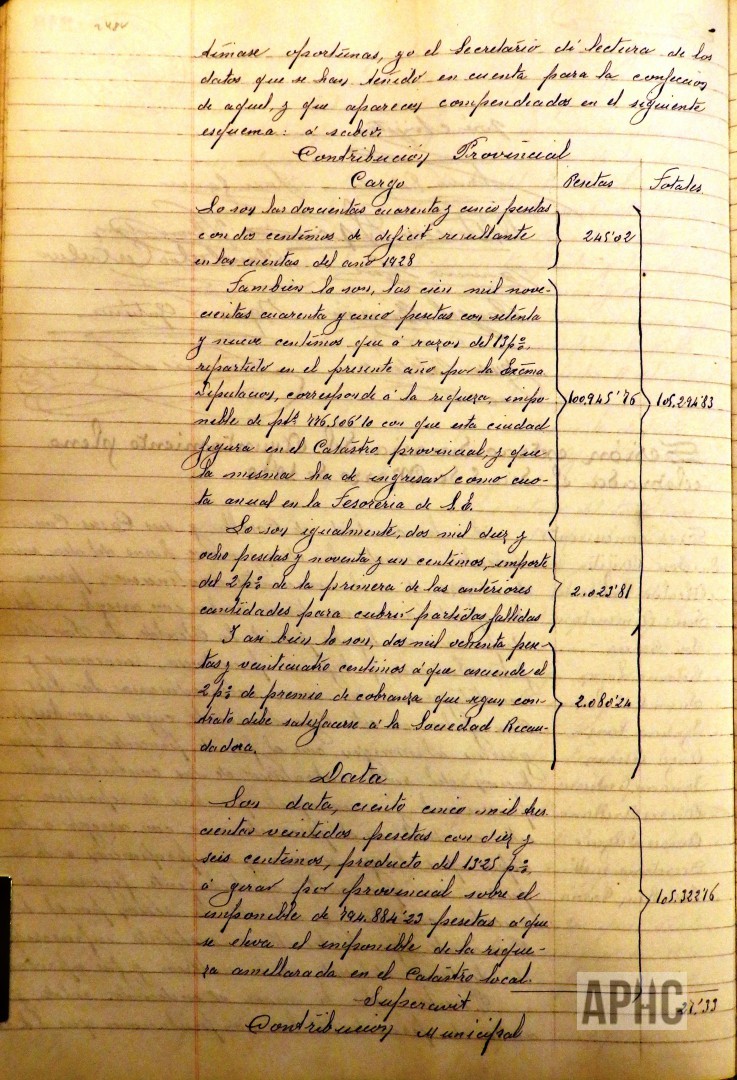 tímase oportunas, yo el Secretario dí lectura de los
datos que se han tenido en cuenta para la confeccion
de aquel, y que aparecen compendiados en el siguiente
esquema: á saber:
Contribución Provincial
Cargo Pesetas Totales.
Lo son las doscientas cuarenta y cinco pesetas
con dos centimos de deficit resultante 245'02
en las cuentas del año 1928
Tambien lo son, las cien mil nove-
cientas cuarenta y cinco pesetas con setenta
y nueve centimos que á razon del 13 p%
repartido en el presente año por la Excma
Diputacion, corresponde á la riqueza, impo- 100.945'76 105.294'83
nible de pts. 776.506'10 con que esta ciudad
figura en el Catástro provincial, y que
la misma ha de ingresar como cuo-
ta anual en la Tesoreria de S.E.
Lo son igualmente, dos mil diez y
ocho pesetas y noventa y un centimos, importe
del 2 p% de la primera de las anteriores 2.023'81
cantidades para cubrir partidas fallidas
Y asi bien lo son, dos mil ochenta pese-
tas y veinticuatro centimos á que asciende el
2 p% de premio de cobranza que segun con- 2.080'24
trato debe satisfacerse á la Sociedad Recau-
dadora.
Data
Son data, ciento cinco mil tres
cientas veintidos pesetas con diez y
seis centimos, producto del 13'25 p%
á girar por provincial sobre el 105.322'16
imponible de 794.884'23 pesetas á que
se eleva el imponible de la rique-
za amillarada en el Catástro local.
Superavit 27'33
Contribución Municipal
APHC